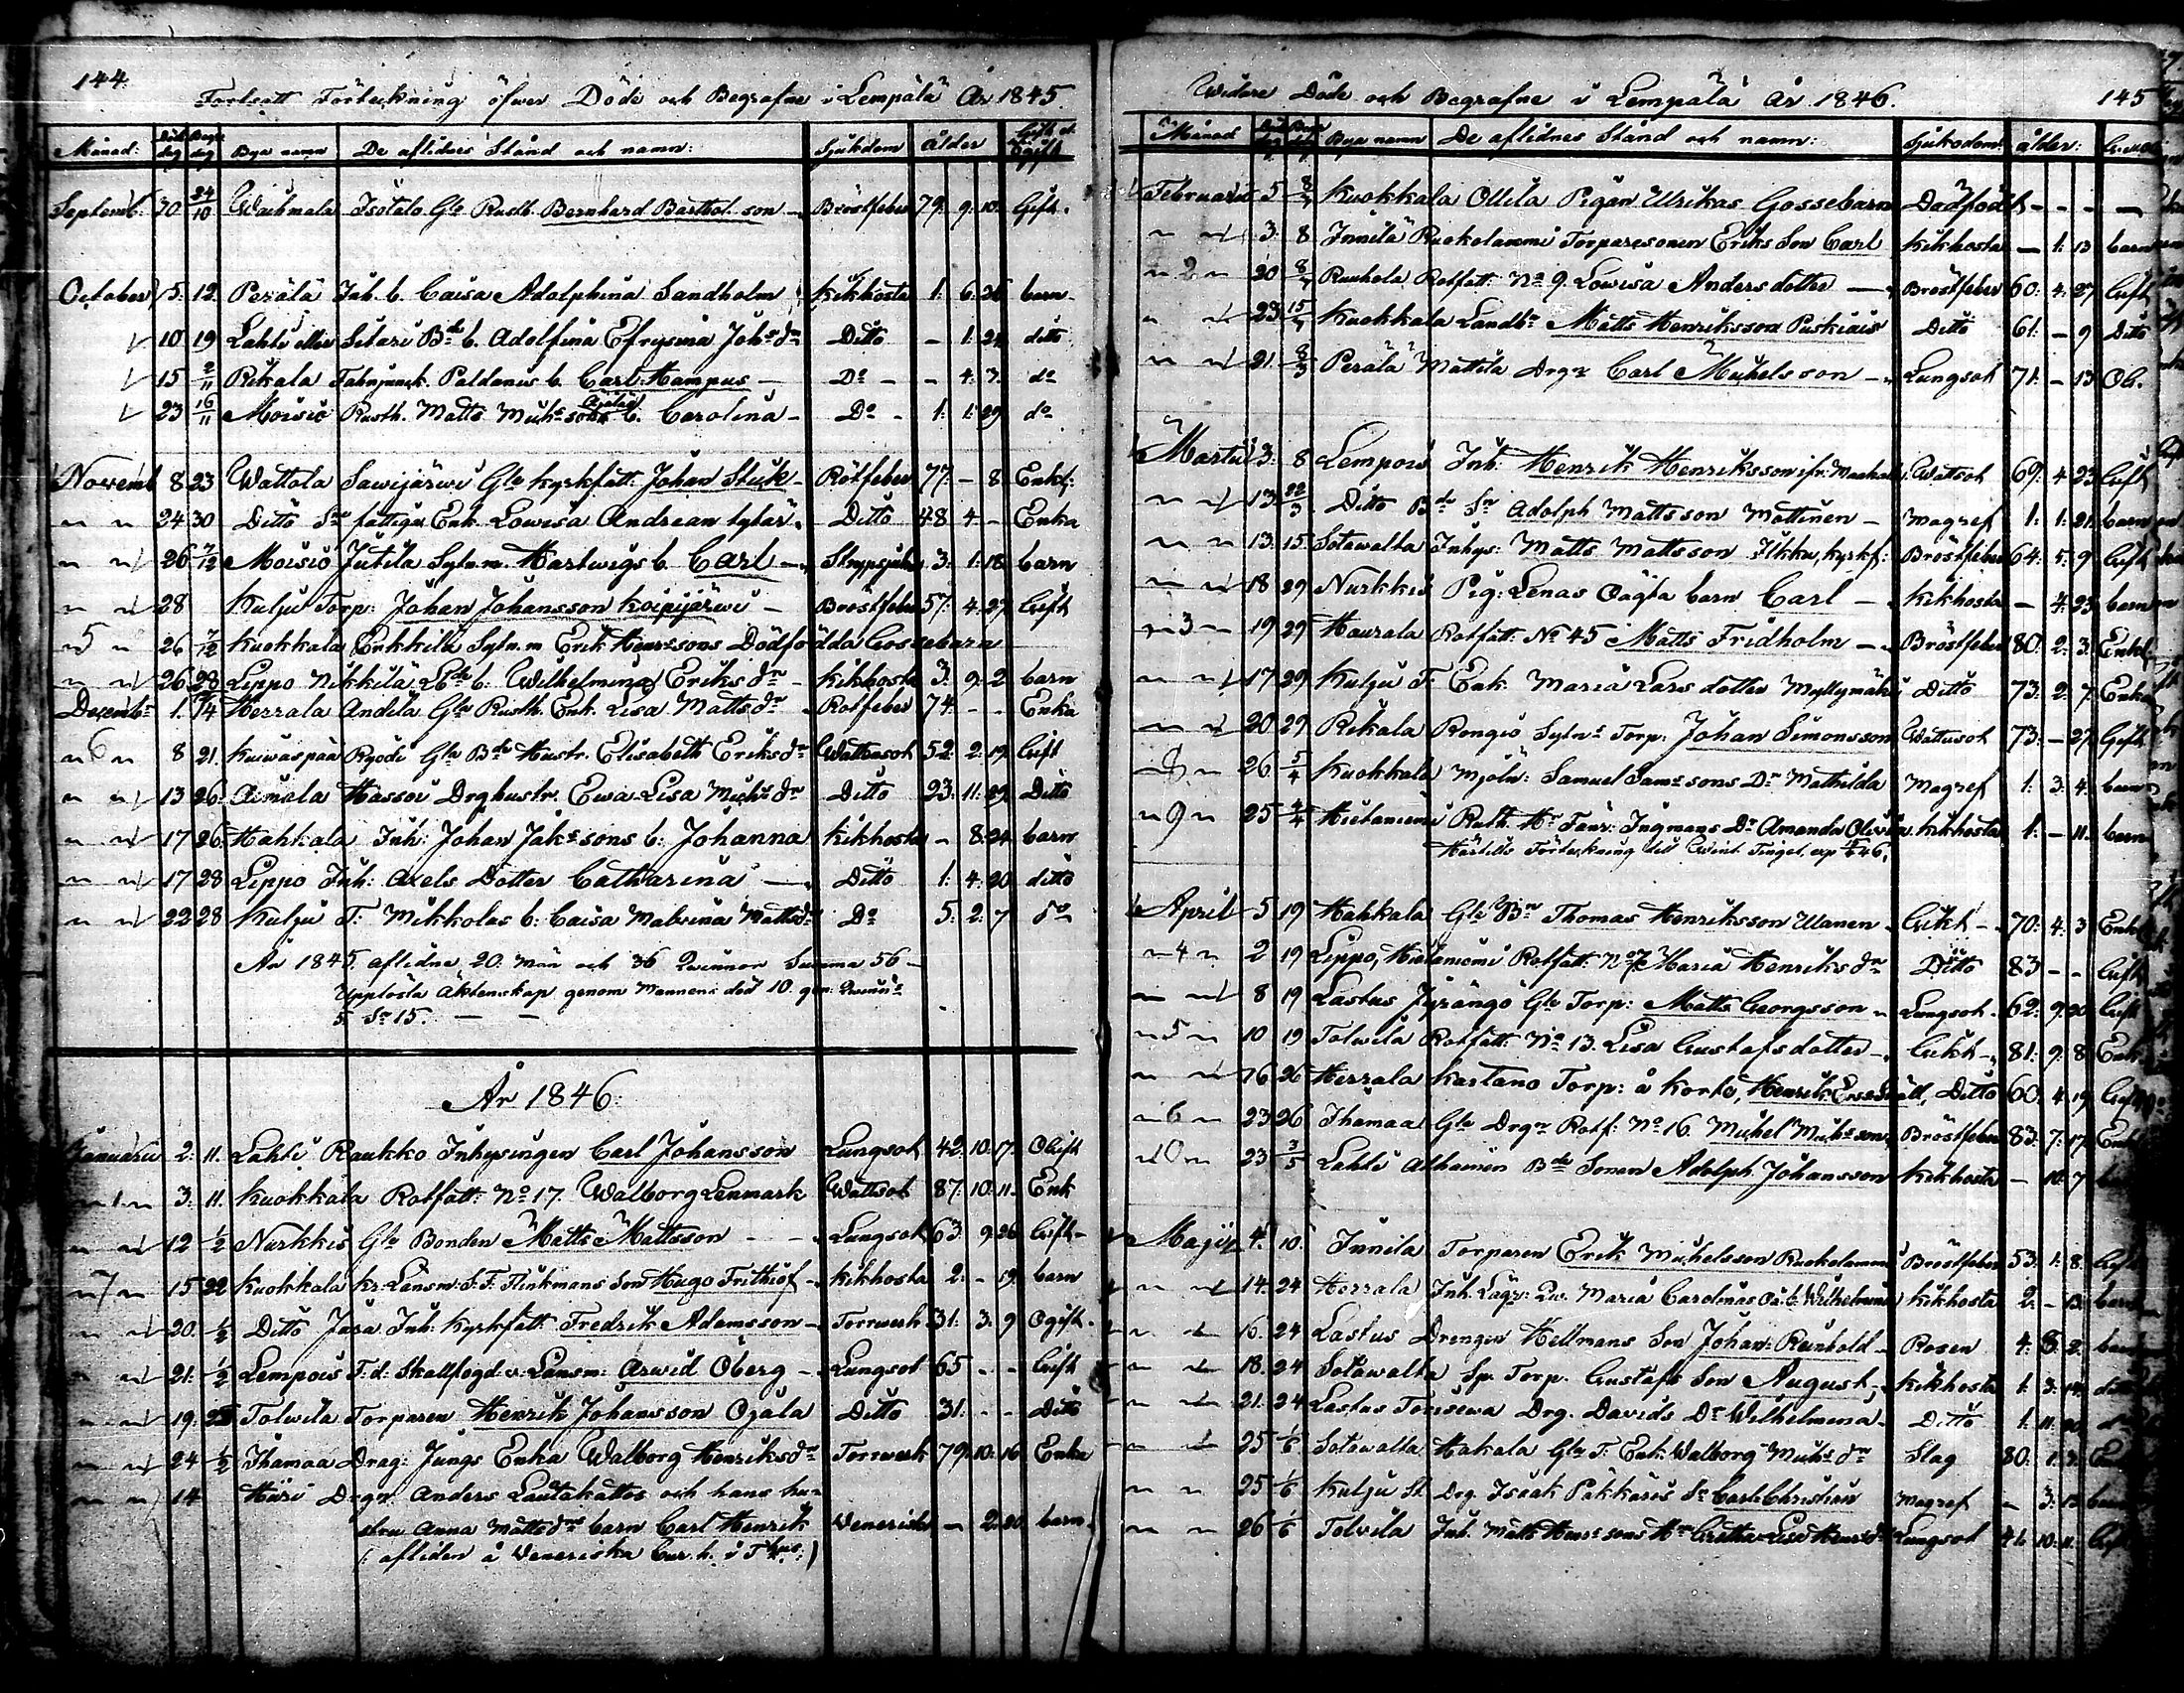 144.
Fortsatt Förteckning öfwer Döde och Begrafne i Lempälä År 1845.
Månad: Död dag Begr dag Bya namn De aflidnes Stånd och namn: Sjukdom ålder Gift el. Ogift
Septemb. 30 24/10 Waihmala Isotalo Gle Rusth. Bernhard Barthol.son Bröstfeber 79. 9. 10. Gift.
October 5. 12. Perälä Inh. b. Caisa Adolphina Sandholm Kikhosta 1. 6. 26 barn
10 19 Lahti eller Sitari Bde b. Adolfina Efrysina Johs dr Ditto - 1. 24 ditto
15 2/11 Rikala Fahnjunck. Paldanus b. Carl Hampus Do - - 4. 3. do
23 16/11 Moisio Rusth. Matts Michs sons b. Carolina Do - 1. 1. 29 do
Novemb 8 23 Wattola Sawijärwi Gle Kyrkfatt: Johan Stick Rötfeber 77. - 8. Enkl:
24 30 Ditto Sne fattiga Enk. Lowisa Andrean tytär Ditto 48 4 - Enka
26 7/12 Moisio Jutila Sytn.m. Hartwigs b. Carl Strypsjuka 3. 1. 18. barn
28 Kulju Torp: Johan Johansson Koipijärwi Bröstfeber 57. 4. 27 Gift
5 26 7/12 Kuokkala Enkkilä Sytn.m Erik Henrssons Dödfödda Gossebarn
26 28 Lippo Nikkilä Lbde b. Wilhelmina Eriks dr Kikhosta 3. 9. 2 barn
Decemb 1. 14 Herrala Andila Gle Rusth. Enk. Lisa Mattsdr Rötfeber 74. - - Enka
6 8 21. Kuiwaspää Ryödi Gle Bde Hustr. Elisabeth Eriksdr Wattusot 52. 2. 19 Gift
13 26 Aimala Hassoi Drghustr. Ewa Lisa Michs dr Ditto 23. 11. 29 Ditto
17 26. Hahkala Inh: Johan Jaks sons b: Johanna Kikhosta - 8. 24 barn
17 28 Lippo Inh: Axels Dotter Catharina Ditto 1. 4. 20 ditto
22 28 Kulju T: Mikkolas b: Caisa Malwina Mattsdr Do 5. 2. 7 do
År 1845. aflidne 20. Män och 36 Qwinnor Summa 56
Upplösta Äktenskap genom Mannens död 10. gen. Qwinns
5. Sa 15.
År 1846.
Januarii 2. 11. Lahti Raukko Inhysingen Carl Johansson Lungsot 42. 10. 17. Ogift
1 3. 11. Kuokkala Rotfatt: No 17. Walborg Lenmark Wattsot 87. 10. 11. Enk
12 1/2 Nurkkis Gle Bonden Matts Mattsson Lungsot 63. 9 26 Gift
7 15 22 Kuokkala Kr. Länsm: F. F. Flinkmans Son Hugo Frithiof Kikhosta 2. - 19. barn
20. 1/2 Ditto Jära Inh. Kyrkfatt Fredrik Adamsson Torrwerk 31. 3. 9 Ogift.
21. 1/2 Lempois F.d. Skallfogd v. Länsm: Arwid Öberg Lungsot 65 - - Gift
19. 25 Tolwila Torparen Henrik Johansson Ojala Ditto 31. - - Ditto
24 1/2 Ihamaa Drag: Jungs Enka Walborg Henriksdr Torrwerk 79. 10. 16 Enka
14 Huri Drgn. Anders Lautakattos och hans hu-
stru Anna Matts drs barn Carl Henrik Weneriska - 2. 20 barn
(: afliden å Veneriska Cur. h. i T:hus:)
Widare Döde och Begrafne i Lempälä År 1846. 145
Månad Bya namn De aflidnes Stånd och namn: Sjukdom: ålder:
Februarii 5 8/3 Kuokkala Ollila Pigan Ulrikas Gossebarn Dödfödt - - -
3. 8 Innilä Ruokolammi Torparesonen Eriks Son Carl Kikhosta - 1. 13 barn
2 20 8/3 Ruuhola Rotfatt: No 9. Lowisa Anders dotter Bröstfeber 60. 4. 27 Gift
23 15/3 Kuokkala Landb. Matts Henriksson Puskiais Ditto 61. - 9 Ditto
21. 8/3 Perälä Mattila Drgn Carl Michelsson Lungsot 71. - 13 Og.
Martii 3. 8 Lempois Inh: Henrik Henriksson Wattsot 69. 4. 23 Gift
13 22/3 Ditto Bde Sn Adolph Matts son Mattinen Magref 1. 1. 21. barn
13. 15 Sotawalta Inhys: Matts Mattsson Ilkka, Kyrkf: Bröstfeber 64. 5. 9. Gift
18 29 Nurkkis Pig: Lenas Oägta barn Carl Kikhosta - 4. 23 barn
3 19 29 Haurala Rotfatt: No 45 Matts Fridholm Bröstfeber 80. 2. 3. Enkl
17 29 Kulju T. Enk. Maria Lars dotter Myllymäki Ditto 73. 2. 7. Enka
20 29 Rikala Rongio Sytns Torp: Johan Simonsson Wattusot 73. - 27. Gift
8 26 5/4 Kuokkala Mjöln: Samuel Sams sons Dr Mathilda Magref 1. 3. 4. barn
9 25 4/4 Hietaniemi Rusth. Hr Fänr. Ingmans Dr Amanda Olivia Kikhosta 1. - 11. barn
Härtills Förteckning till Wint. Tinget,
April 5 19 Hahkala Gle Bn Thomas Henriksson Ulanen Gikt 70. 4. 3 Enkl
4 2 19 Lippo, Hietaniemi Rotfatt: No 7 Maria Henriksdr Ditto 83 - - Gift
8 19 Lastus Jyrängö Gle Torp: Matts Georgsson Lungsot 62. 9. 20 Gift
5 10 19 Tolwila Rotfatt. No 13. Lisa Gustafs dotter Gikt 81. 9. 8 Enk
16 26 Herrala Kartano Torp: å Korto, Henrik Ditto 60. 4. 19 Gift
6 23 26 Ihamaa Gle Drgn Rotf: No 16. Michel Michs son Bröstfeber 83. 7. 17
10 23 3/5 Lahti Althainen Bde Sonen Adolph Johansson Kikhosta - 10. 7
Maji 4. 10. Innila Torparen Erik Michelsson Ruokolammi Bröstfeber 53. 1. 8.
14. 24 Herrala Inh. Lägr: Qv. Maria Carolinas Oä. b. Wilhelmina Kikhosta 2. - 13.
16. 24 Lastus Drengen Hellmans Son Johan Reinhold Rosen 4. 8. 2.
18. 24 Sotawalta Sp. Torp. Gustafs Son August, Kikhosta 1. 3. 14
21. 24 Lastus Torisewa Drg. Davids Dr Wilhelmina Ditto 1. 11. 20
25 1/6 Sotawalta Hakala Gle T. Enk. Walborg Michs dr Slag 80.
25 1/6 Kulju St. Drg. Isaak Päkkäris Sn Carl Christian Magref - 3. 13
26 1/6 Tolvila Inh. Matts Henrs sons Hu Gretha Lisa Henrsdr Lungsot 41. 10. 11.